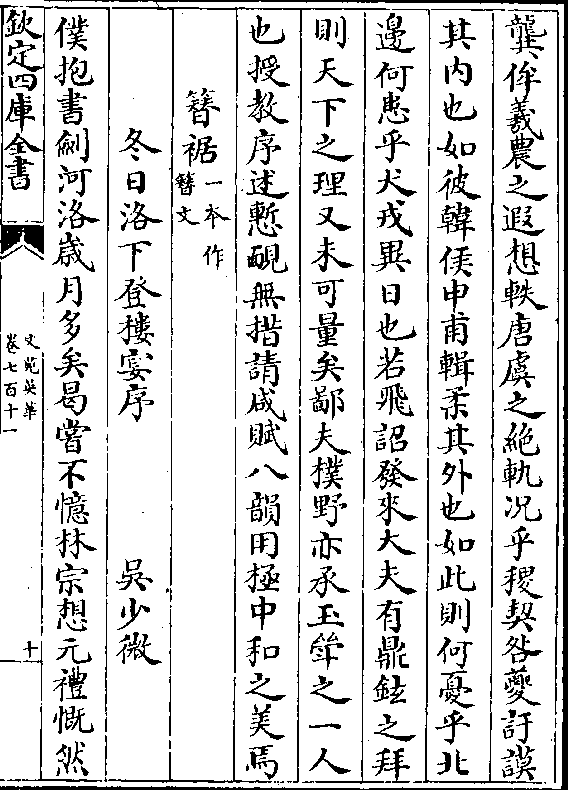 龔侔羲農之遐想軼唐虞之絕軌況乎稷契咎夔訏謨
其内也如彼韓侯申甫輯柔其外也如此則何憂乎北
邊何患乎犬戎異日也若飛詔發來大夫有鼎鉉之拜
則天下之理又未可量矣鄙夫樸野亦承玉斝之一人
也授教序述慙靦無措請咸賦八韻用極中和之美焉
簪裾一本作簪文
冬日洛下登樓宴序 吳少微
僕抱書劍河洛歲月多矣曷嘗不憶林宗想元禮慨然
欽定四庫全書
文苑英華
卷七百十一
十